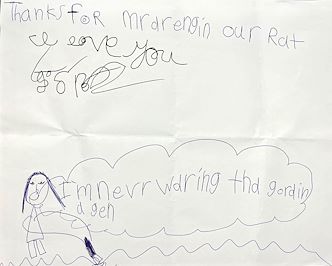 Thanks foR mrdrengin our Rat
I Love you
Imnevr wdring thd gordin
a gen